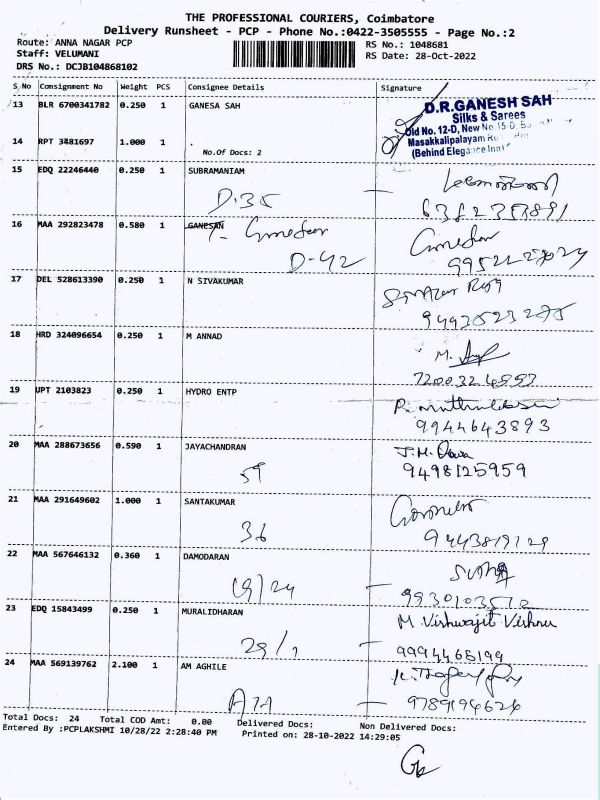 THE PROFESSIONAL COURIERS, Coimbatore
Delivery Runsheet - PCP - Phone No.:0422-3505555 - Page No.:2
Route: ANNA NAGAR PCP
RS No.: 1048681
Staff: VELUMANI
RS Date: 28-Oct-2022
DRS No.: DCJB104868102
S/No Consignment No Weight PCS Consignee Details Signature
13 BLR 6700341782 0.250 1 GANESA SAH
D.R.GANESH SAH
Silks & Sarees
Old No. 12-D, New No.15-D
Masakkalipalayam
(Behind Elegance Inn)
14 RPT 3481697 1.000 1
No.Of Docs: 2
15 EDQ 22246440 0.250 1 SUBRAMANIAM
D.35
16 MAA 292823478 0.580 1 GANESAN
D-42
17 DEL 528613390 0.250 1 N SIVAKUMAR
18 HRD 324096654 0.250 1 M ANNAD
M.
19 UPT 2103823 0.250 1 HYDRO ENTP
9944643893
20 MAA 288673656 0.590 1 JAYACHANDRAN
59
9498125959
21 MAA 291649602 1.000 1 SANTAKUMAR
36
22 MAA 567646132 0.360 1 DAMODARAN
19/24
23 EDQ 15843499 0.250 1 MURALIDHARAN
M. Vishwajit Vishnu
29/1
9994465199
24 MAA 569139762 2.100 1 AM AGHILE
9789194624
Total Docs: 24 Total COD Amt: 0.00 Delivered Docs: Non Delivered Docs:
Entered By :PCPLAKSHMI 10/28/22 2:28:40 PM Printed on: 28-10-2022 14:29:05